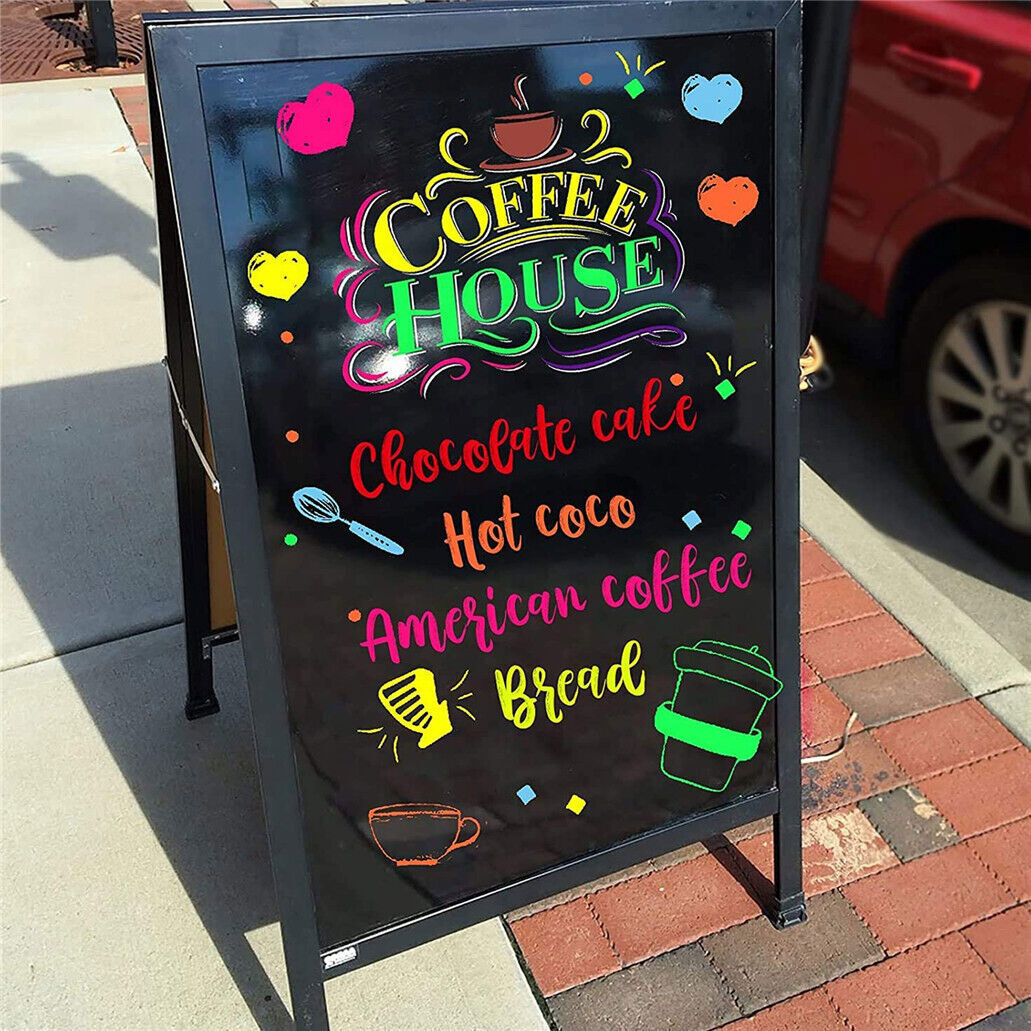 COFFEE
HOUSE
Chocolate cake
Hot coco
American coffee
Bread